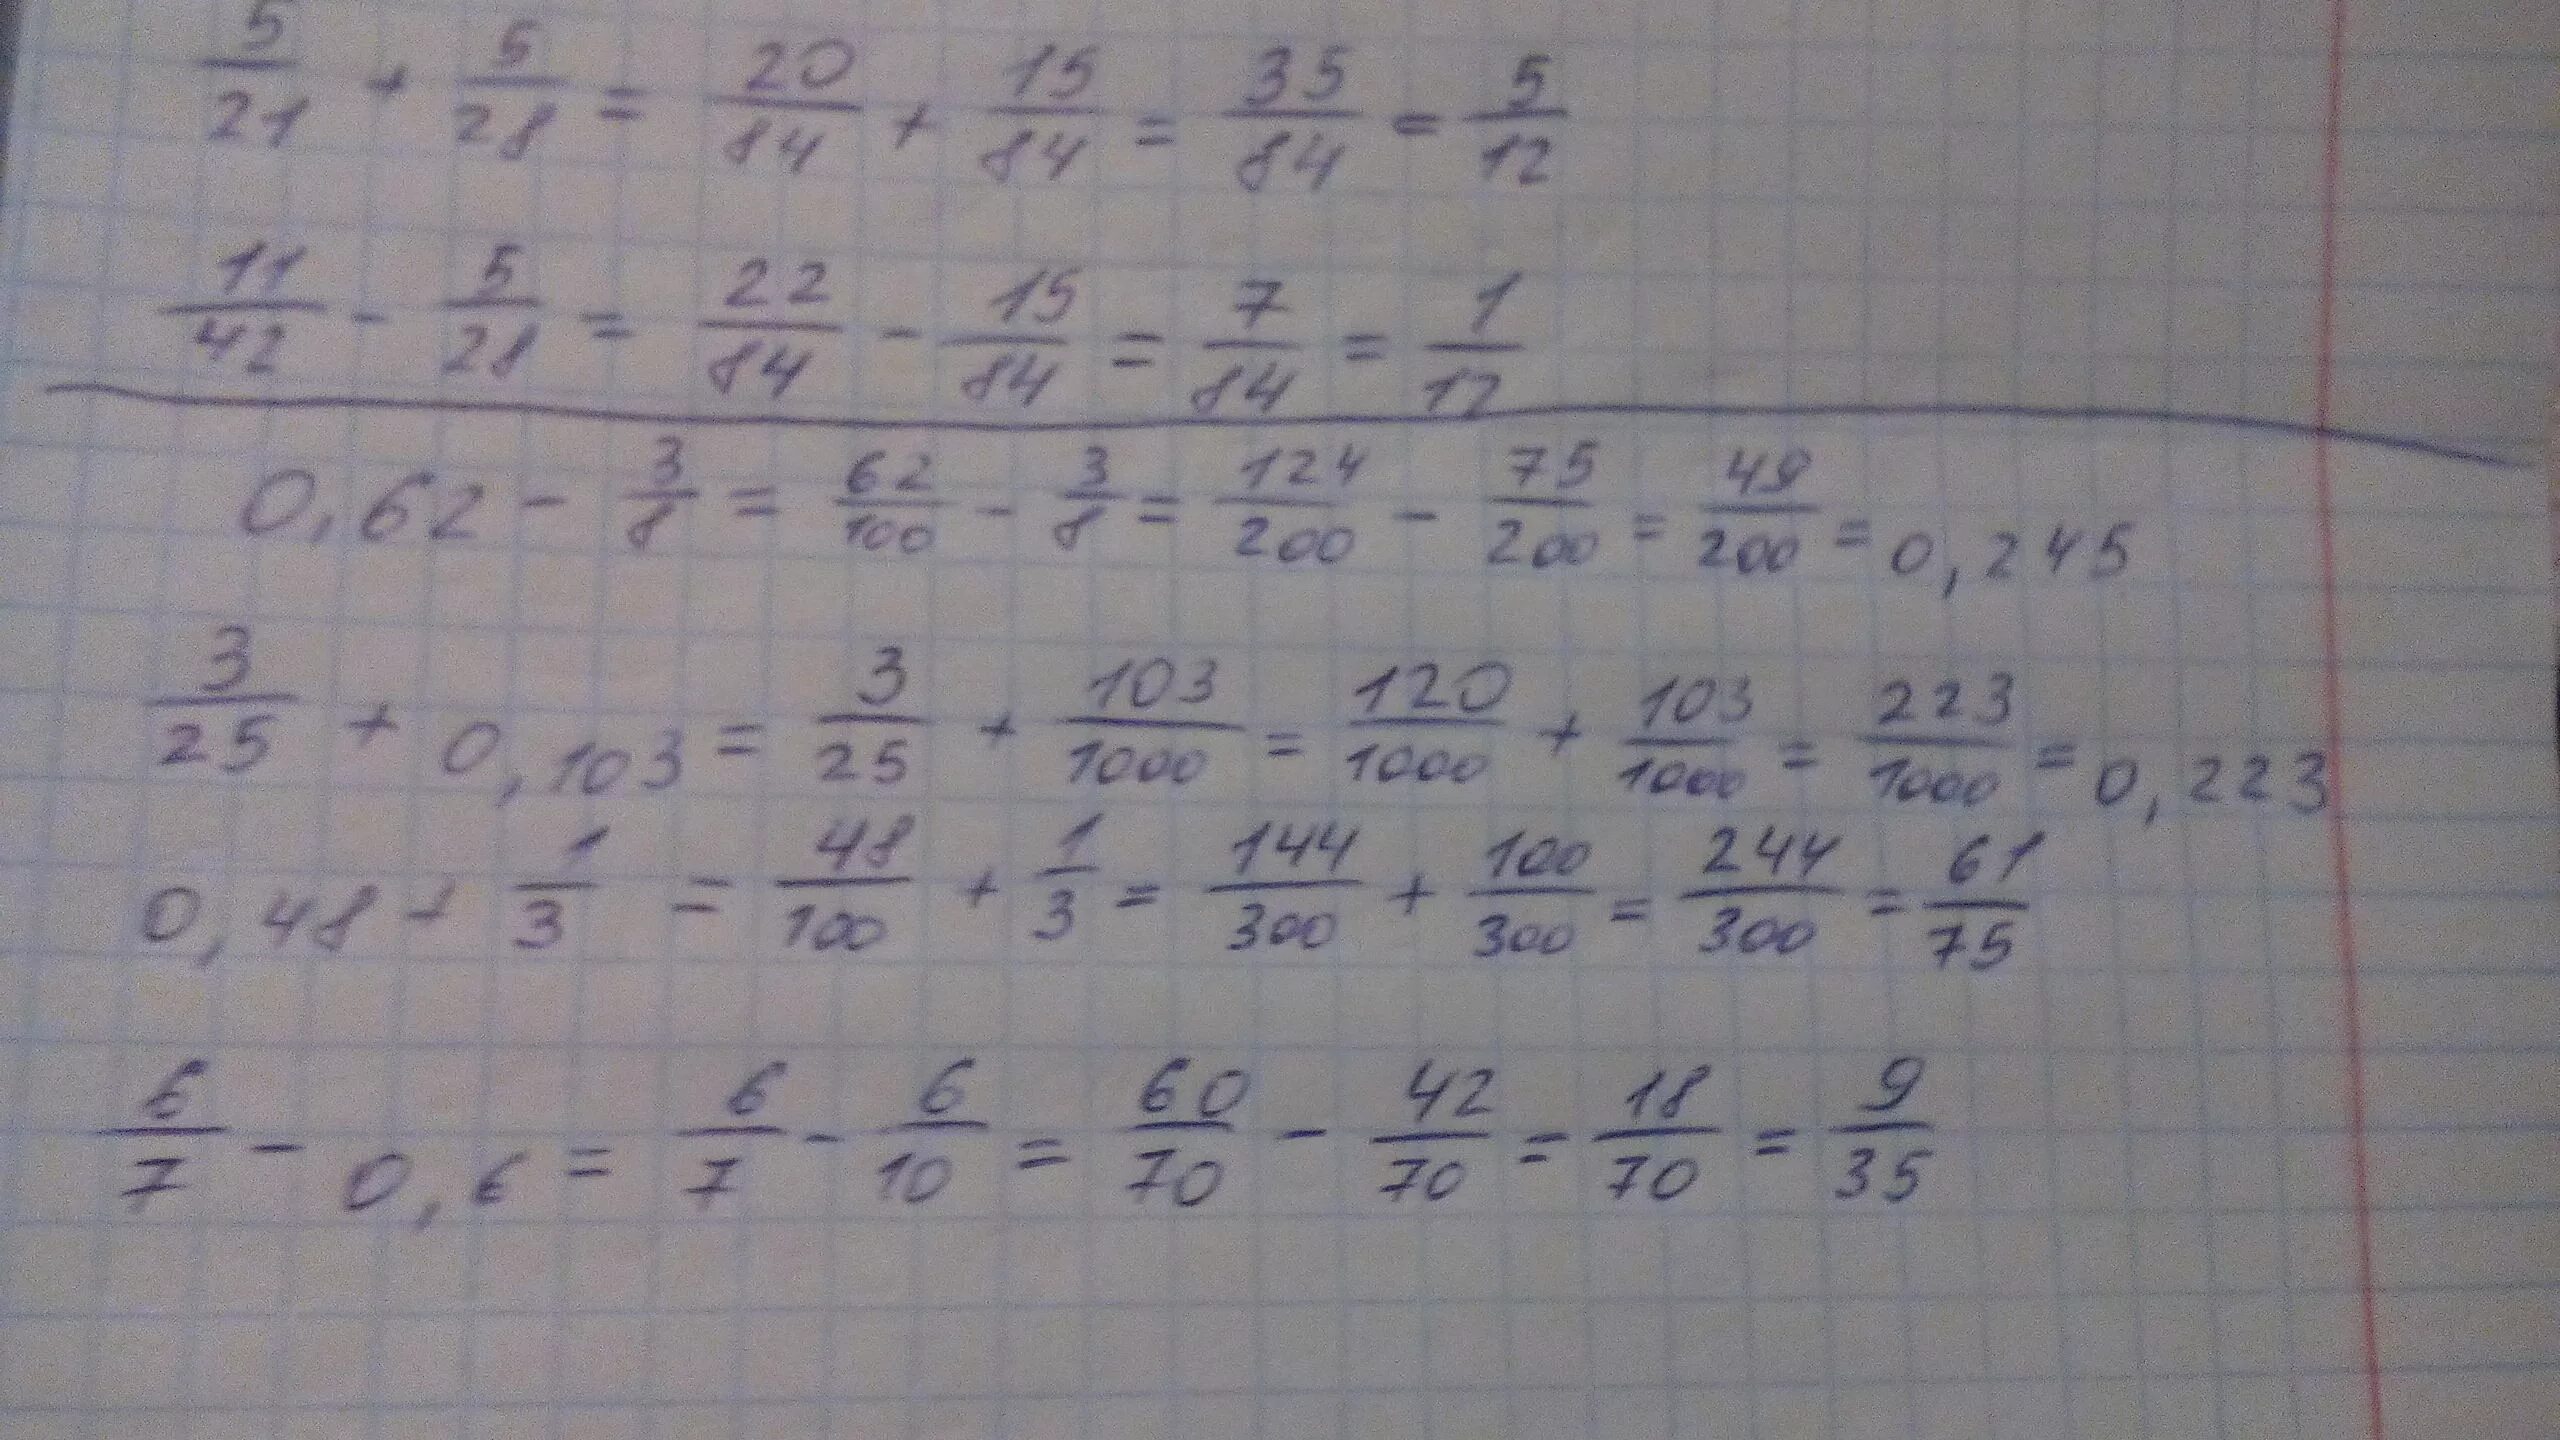 5/21 + 5/28 = 20/84 + 15/84 = 35/84 = 5/12
11/42 - 5/28 = 22/84 - 15/84 = 7/84 = 1/12
0,62 - 3/8 = 62/100 - 3/8 = 124/200 - 75/200 = 49/200 = 0,245
3/25 + 0,103 = 3/25 + 103/1000 = 120/1000 + 103/1000 = 223/1000 = 0,223
0,48 + 1/3 = 48/100 + 1/3 = 144/300 + 100/300 = 244/300 = 61/75
6/7 - 0,6 = 6/7 - 6/10 = 60/70 - 42/70 = 18/70 = 9/35